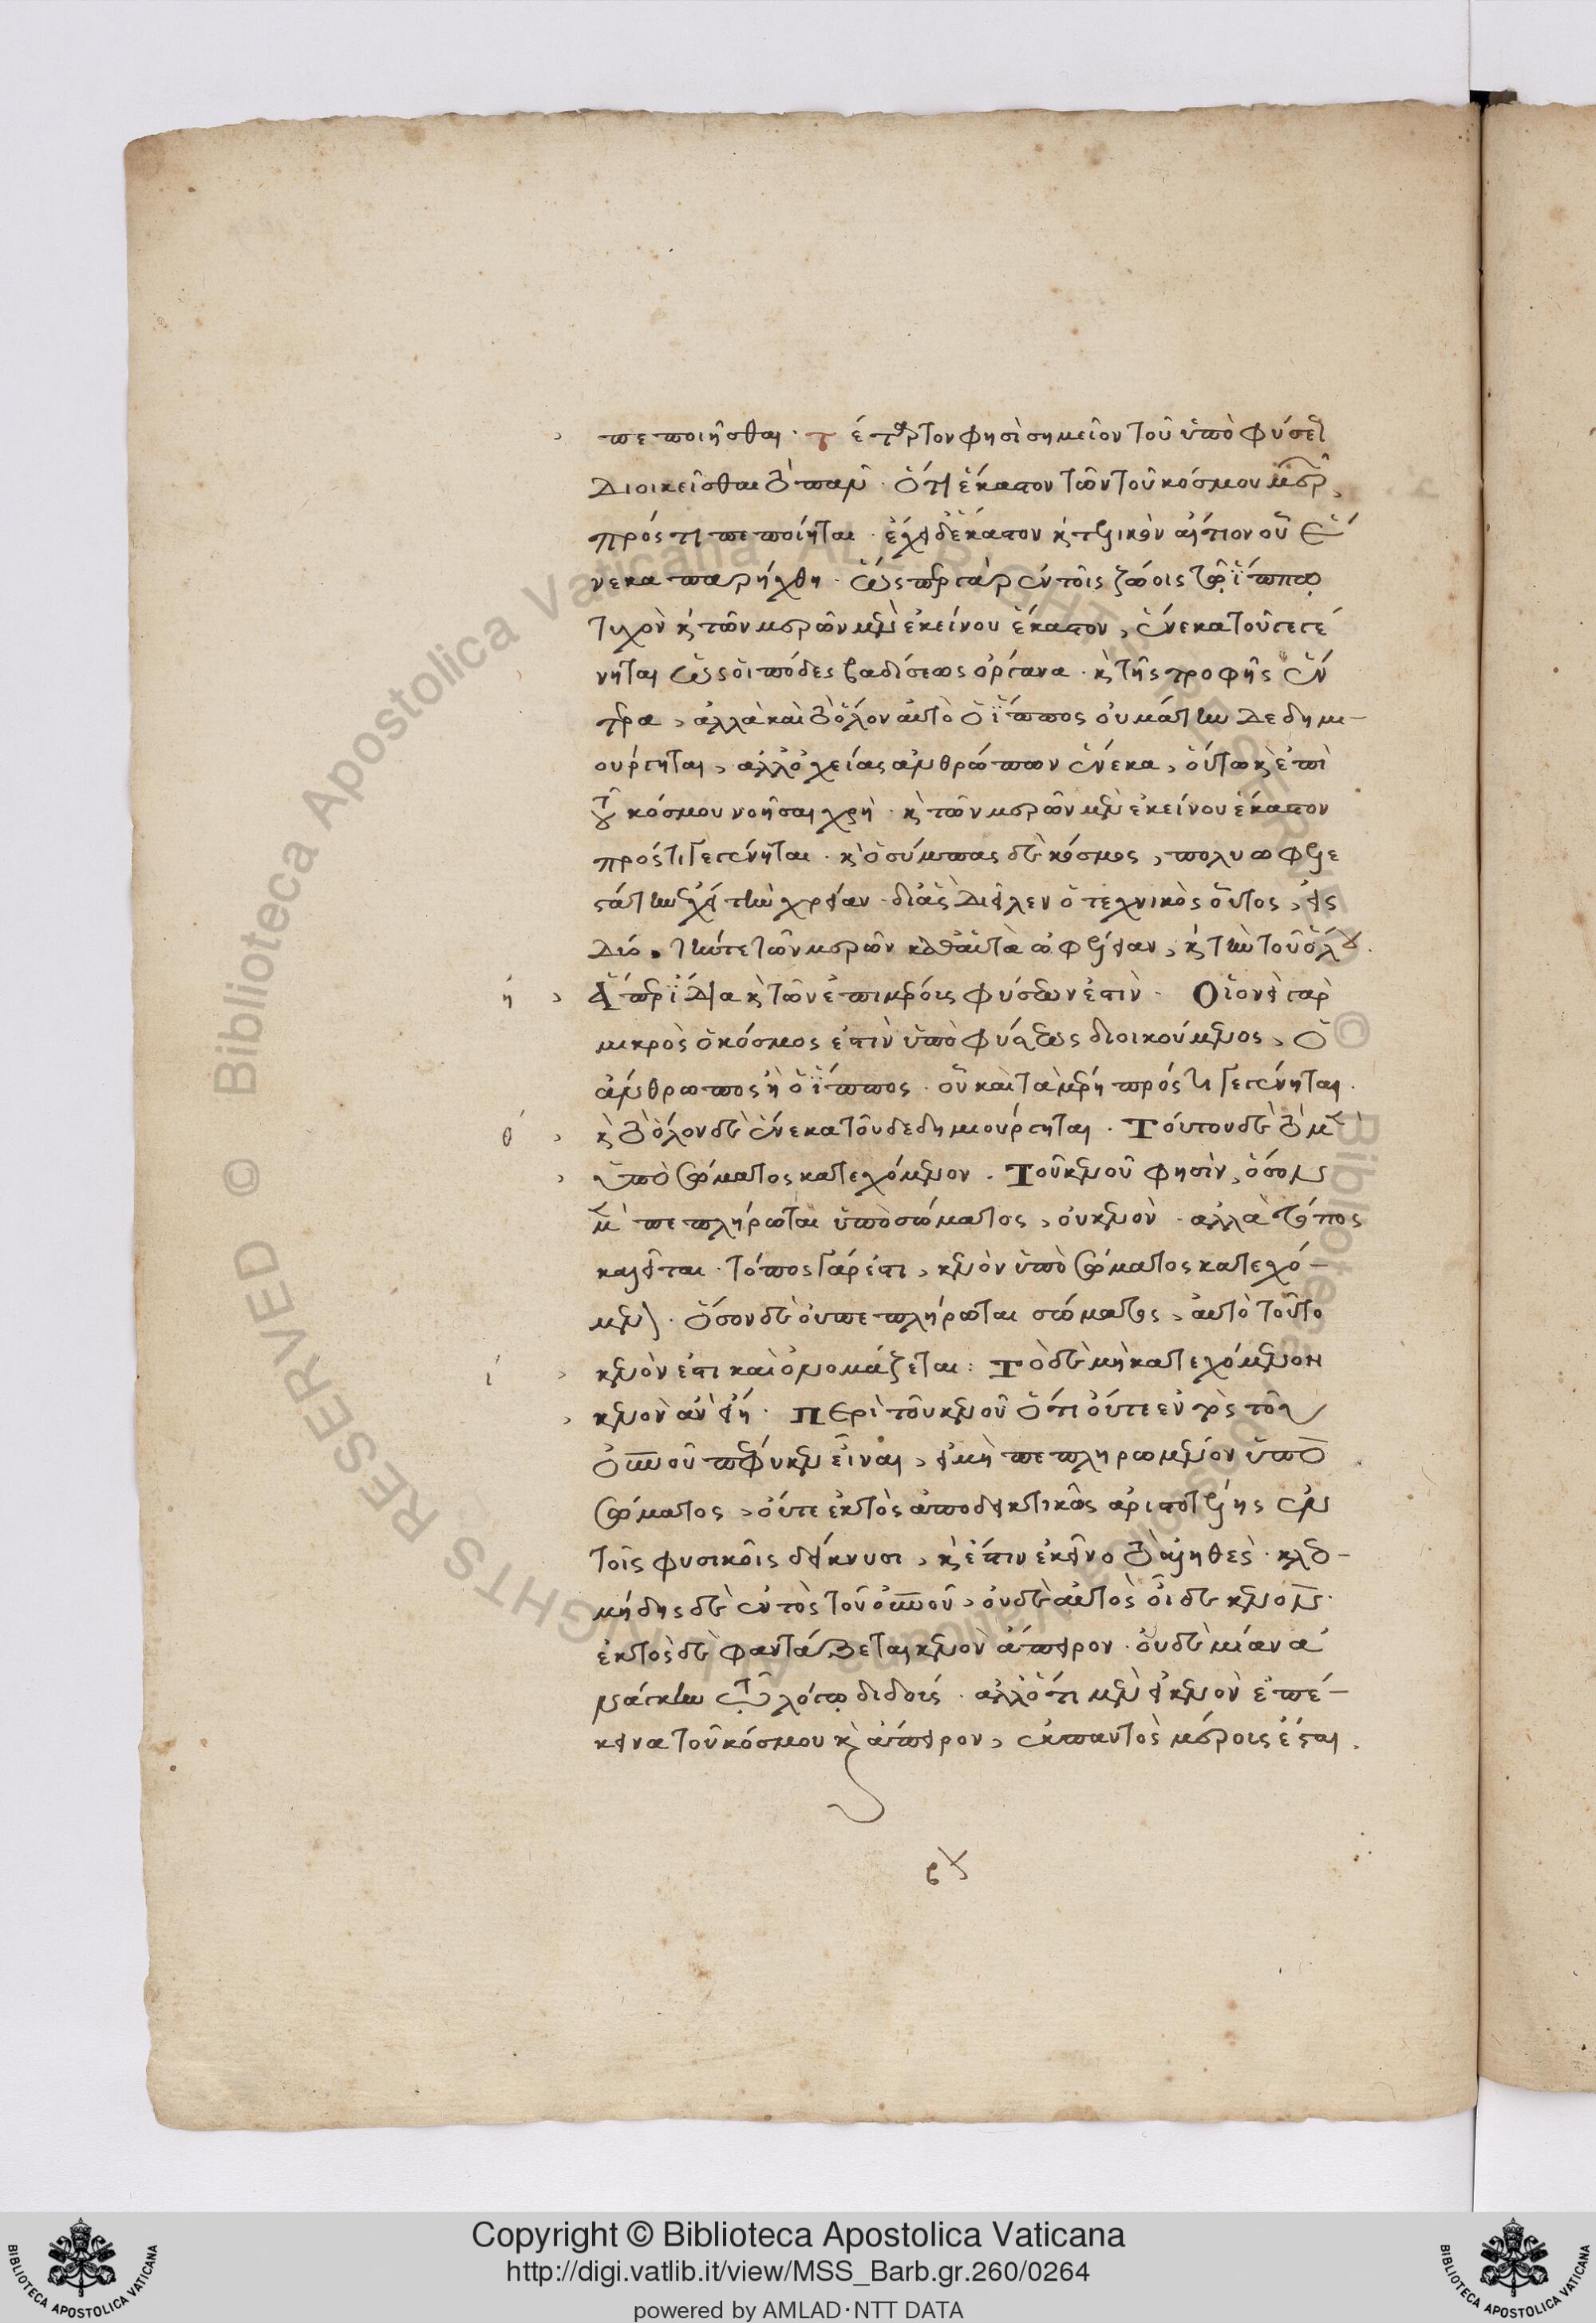 πεποιῆσθαι · τέταρτον φησὶ σημεῖον τοῦ ὑπὸ φύσει
διοικεῖσθαι τὸ πᾶν · ὅτι ἕκαστον τῶν τοῦ κόσμου μερῶν
πρός τι πεποίηται · ἔχει δὲ ἕκαστον καὶ τελικὸν αἴτιον οὗ ἕ
νεκα παρήχθη · ὥσπερ γὰρ ἐν τοῖς ζώοις τῷ ἵππῳ
τυχὸν καὶ τῶν μερῶν μὲν ἐκείνου ἕκαστον, ἕνεκα τοῦ γεγέ
νηται ὡς οἱ πόδες βαδίσεως ὄργανα · καὶ τῆς τροφῆς ἔν
τερα, ἀλλὰ καὶ τὸ ὅλον αὐτὸ ὁ ἵππος οὐ μάτην δεδημι-
ούργηται, ἀλλὸ χρείας ἀνθρώπων ἕνεκα, οὕτω καὶ ἐπὶ
τοῦ κόσμου νοῆσαι χρὴ · καὶ τῶν μερῶν μὲν ἐκείνου ἕκαστον
πρός τι γεγένηται · καὶ ὁ σύμπας δὲ κόσμος, πολυωφελε
στάτην ἔχει τὴν χρείαν · διὰς διεῖλεν ὁ τεχνικὸς οὗτος, εἰς
δύο · τήν τε τῶν μερῶν καθ' αὑτὰ ὠφέλειαν, καὶ τὴν τοῦ ὅλου.
ή Ἅπερ ἴδια καὶ τῶν ἐπιμέρους φύσεων ἐστὶν · Οἱονεὶ γὰρ
μικρὸς ὁ κόσμος ἐστὶν ὑπὸ φύσεως διοικούμενος, ὁ
ἄνθρωπος ἢ ὁ ἵππος · οὗ καὶ τὰ μέρη πρός τι γεγένηται.
θ καὶ τὸ ὅλον δὲ ἕνεκα τοῦ δεδημιούργηται · Τούτου δὲ τὸ μὲν
ὑπὸ σώματος κατεχόμενον · Τοῦ κενοῦ φησὶν, ὅσον
μὲν πεπλήρωται ὑπὸ σώματος, οὐ κενὸν · ἀλλὰ τόπος
καλεῖται · τόπος γάρ ἐστι, κενὸν ὑπὸ σώματος κατεχό-
μενον · ὅσον δὲ οὐ πεπλήρωται σώματος, αὐτὸ τοῦτο
ί κενὸν ἐστι καὶ ὀνομάζεται: Τὸ δὲ μὴ κατεχόμενον
κενὸν ἂν εἴη · Περὶ τοῦ κενοῦ ὅτι οὔτε ἐντὸς τοῦ
οὐρανοῦ πέφυκεν εἶναι, εἰ μὴ πεπληρωμένον ὑπὸ
σώματος, οὔτε ἐκτὸς ἀποδεικτικῶς ἀριστοτέλης ἐν
τοῖς φυσικοῖς δείκνυσι, καὶ ἔστιν ἐκεῖνο τὸ ἀληθὲς · κλεο-
μήδης δὲ ἐντὸς τοῦ οὐρανοῦ, οὐδὲ αὐτὸς οἶδε κενὸν ·
ἐκτὸς δὲ φαντάζεται κενὸν ἄπειρον · οὐδὲ μίαν ἀ
νάγκην τῷ λόγῳ διδούς · ἀλλ' ὅτι μὲν εἰ κενὸν ἐπέ-
κεινα τοῦ κόσμου καὶ ἄπειρον, ἐκ παντὸς μέρους ἔσται.
Copyright © Biblioteca Apostolica Vaticana
http://digi.vatlib.it/view/MSS_Barb.gr.260/0264
powered by AMLAD·NTT DATA